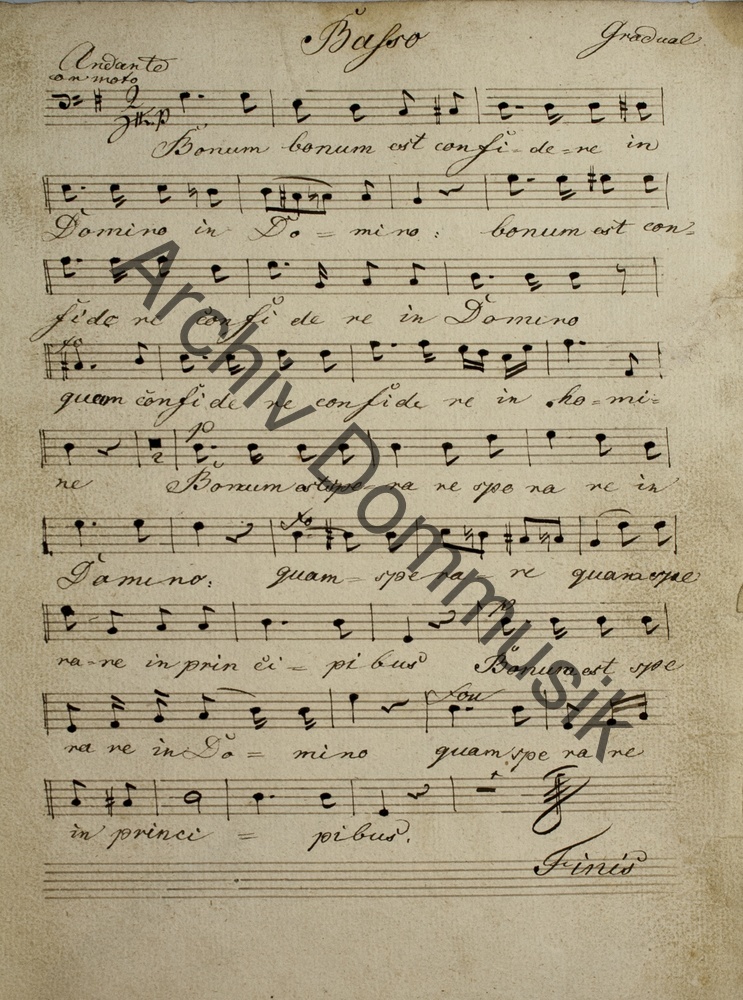 Basso
Gradual
Andante
con moto
p
Bonum bonum est confi-de=re in
Domino in Do=mino: bonum est con=
fide re confi de re in Domino
fo
quam confide re confide re in ho=mi=
ne Bonum est spe=ra re spe ra re in
2
p
Domino: quam=spe ra= re quam spe
fo
ra=re in prin ci = pi bus Bonum est spe
p
ra re in Do = mino quam spe ra re
in princi = pibus.
Finis
Archiv Dommusik